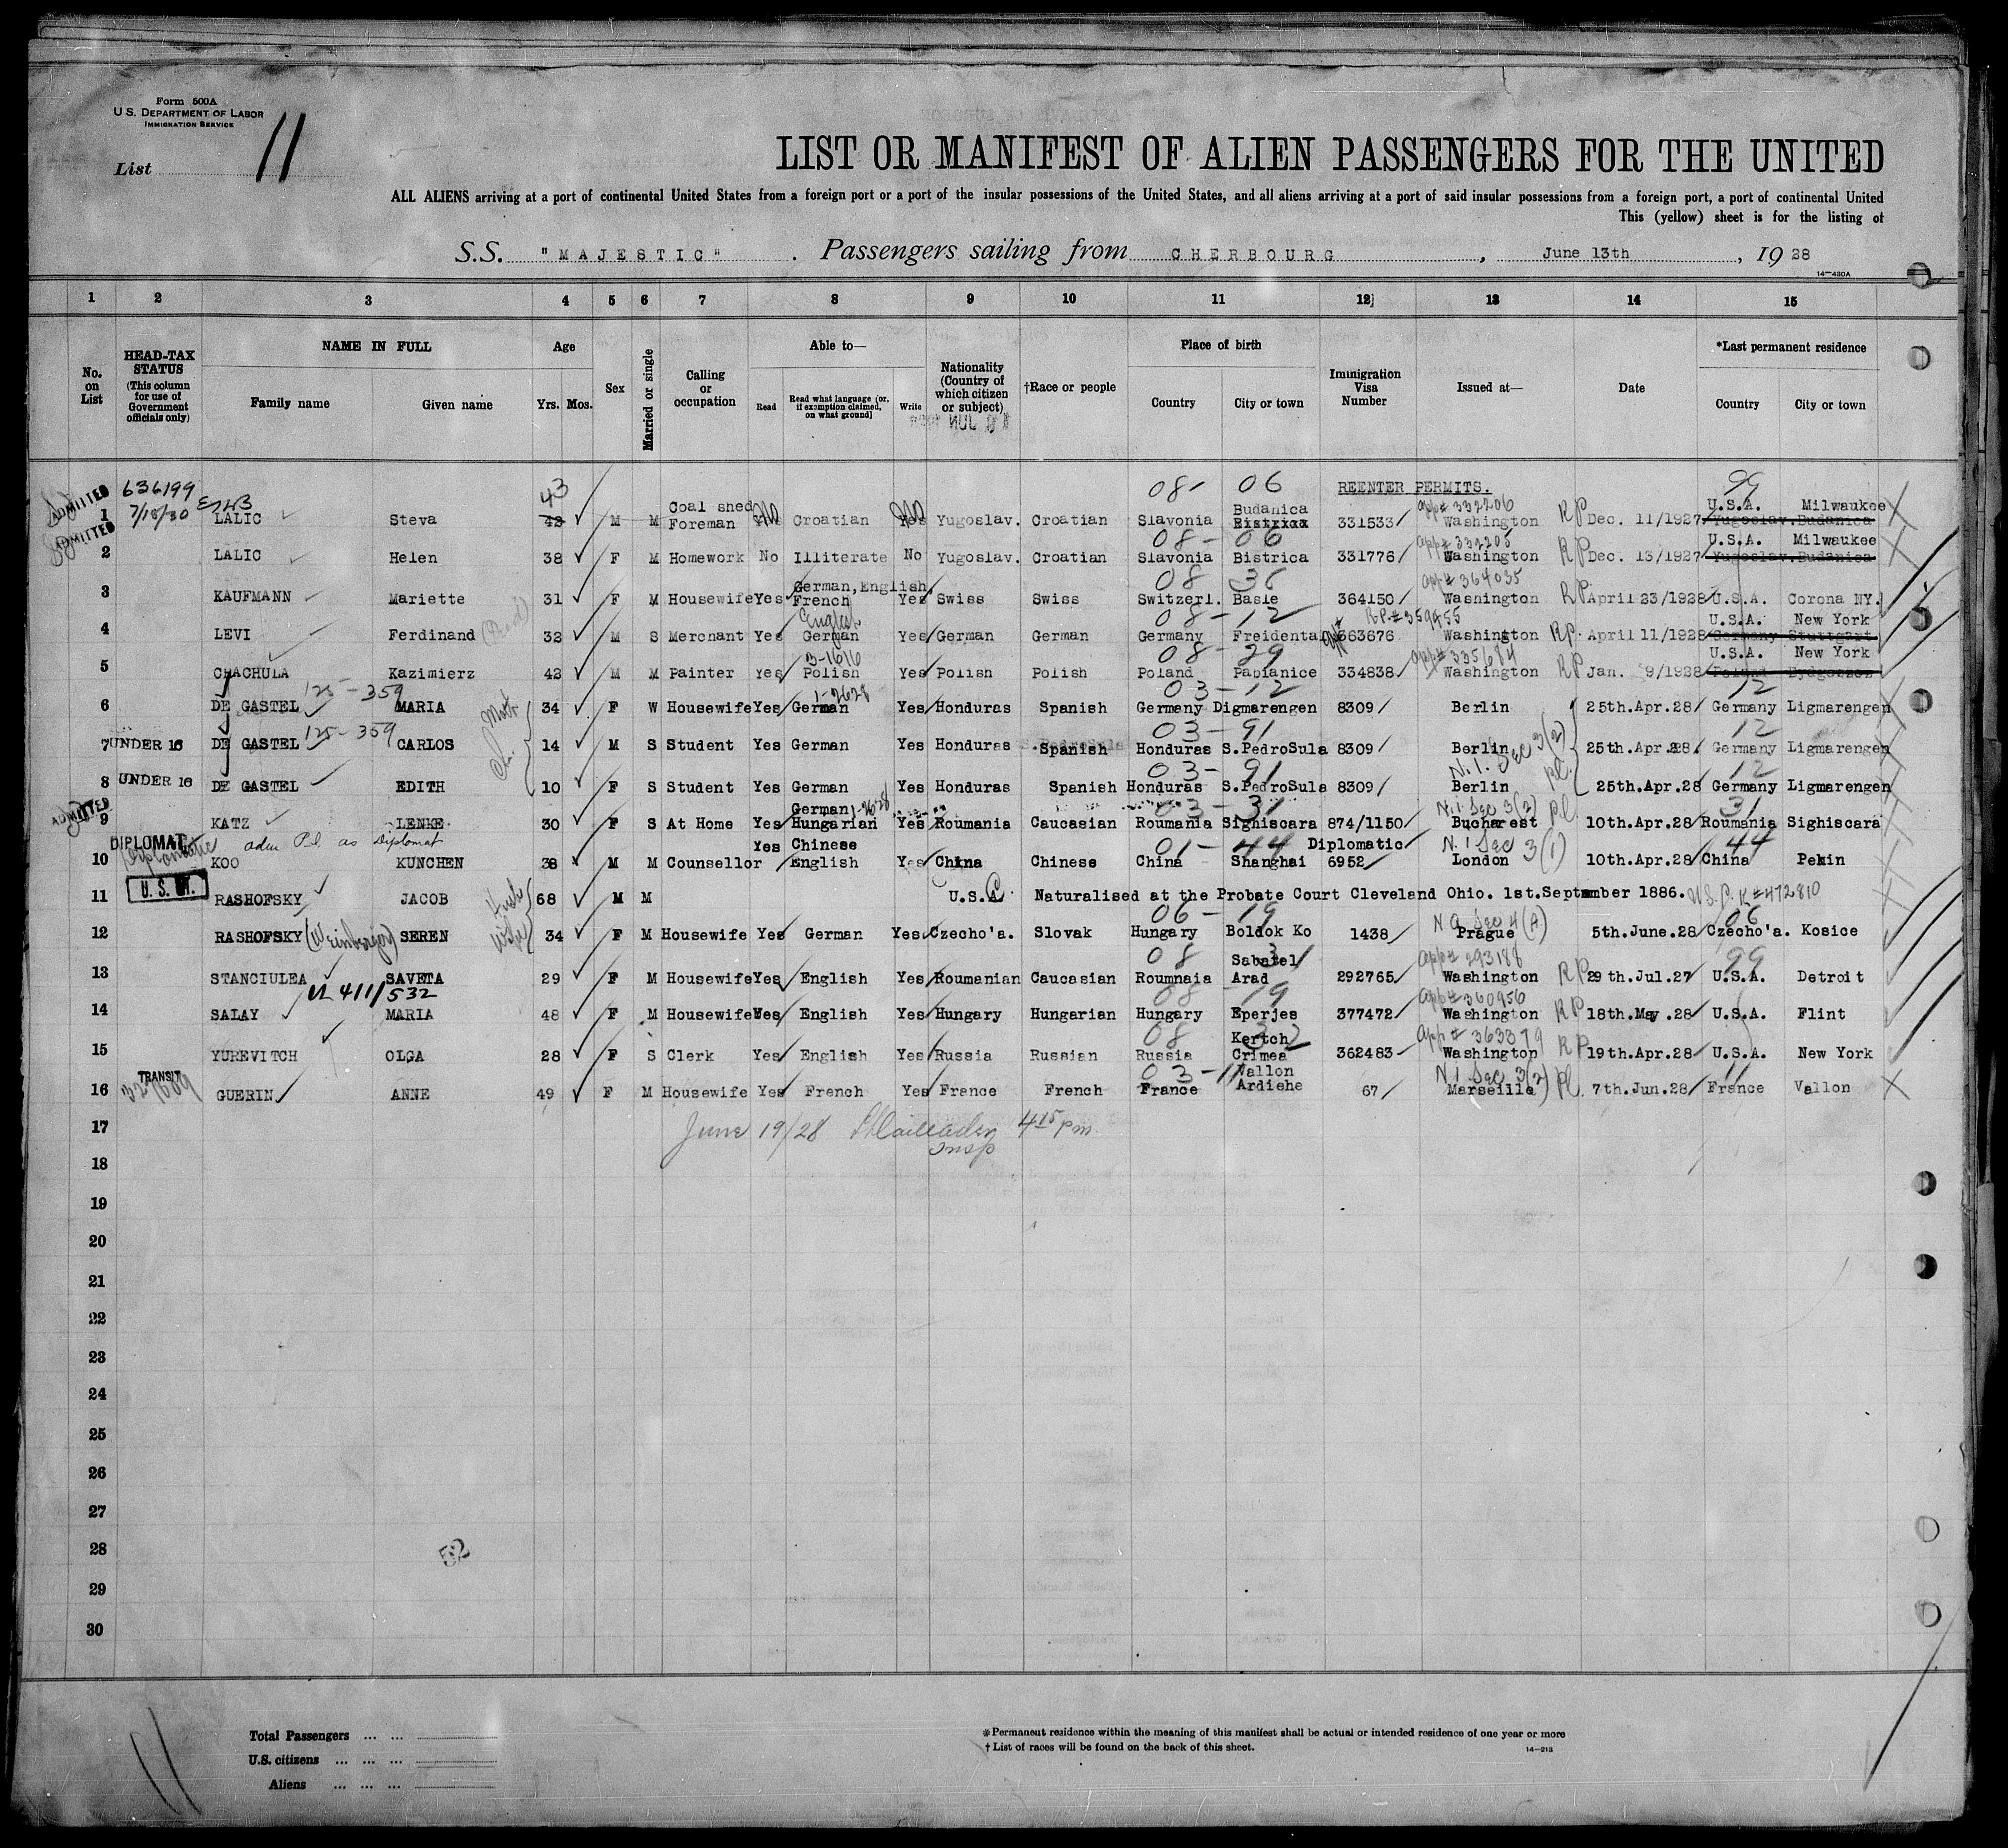 Form 500A
U.S. DEPARTMENT OF LABOR
IMMIGRATION SERVICE
List 11
LIST OR MANIFEST OF ALIEN PASSENGERS FOR THE UNITED
ALL ALIENS arriving at a port of continental United States from a foreign port or a port of the insular possessions of the United States, and all aliens arriving at a port of said insular possessions from a foreign port, a port of continental United
This (yellow) sheet is for the listing of
S.S. "MAJESTIC". Passengers sailing from CHERBOURG, June 13th, 1928
14—430A
1 2 3 4 5 6 7 8 9 10 11 12 13 14 15
No. on List
HEAD-TAX STATUS (This column for use of Government officials only)
NAME IN FULL Family name Given name
Age Yrs. Mos.
Sex
Married or single
Calling or occupation
Able to— Read Read what language [or, if exemption claimed, on what ground] Write
Nationality (Country of which citizen or subject)
†Race or people
Place of birth Country City or town
Immigration Visa Number
Issued at—
Date
*Last permanent residence Country City or town
08- 06 REENTER PERMITS. 99
ADMITTED 636199 7/18/30
1 LALIC Steva 43 42 M M Coal shed Foreman No Croatian No Yugoslav. Croatian Slavonia Budanica 331533 app# 332206 Washington RP Dec. 11/1927 U.S.A. Milwaukee Yugoslav. Budanica
ADMITTED
2 LALIC Helen 38 F M Homework No Illiterate No Yugoslav. Croatian 08-06 Slavonia Bistrica 331776 app# 332205 Washington RP Dec. 13/1927 U.S.A. Milwaukee Yugoslav. Budanica
3 KAUFMANN Mariette 31 F M Housewife Yes German, English, French Yes Swiss Swiss 08 36 Switzerl. Basle 364150 app# 364035 Washington RP April 23/1928 U.S.A. Corona NY.
4 LEVI Ferdinand (Fred) 32 M S Merchant Yes English German Yes German German 08-12 Germany Freidental 363676 RP.#359455 Washington RP. April 11/1928 U.S.A. New York Germany Stuttgart
5 CHACHULA Kazimierz 42 M M Painter Yes 3-1616 Polish Yes Polish Polish 08-29 Poland Pabianice 334838 app# 335684 Washington RP Jan. 9/1928 U.S.A. New York Poland Bydgoszcz
6 DE GASTEL 125-359 MARIA Moth 34 F W Housewife Yes 1-2628 German Yes Honduras Spanish 03-12 Germeny Digmarengen 8309 Berlin 25th.Apr.28 12 Germany Ligmarengen
7 UNDER 16 DE GASTEL 125-359 CARLOS Ch. 14 M S Student Yes German Yes Honduras Spanish 03-91 Honduras S.PedroSula 8309 Berlin N.I. Sec 3(2) pl. 25th.Apr.28 12 Germany Ligmarengen
8 UNDER 16 DE GASTEL EDITH 10 F S Student Yes German Yes Honduras Spanish 03-91 Honduras S.PedroSula 8309 Berlin 25th.Apr.28 12 Germany Ligmarengen
ADMITTED
9 KATZ LENKE 30 F S At Home Yes German 1-2628 Hungarian Yes Roumania Caucasian 03-31 Roumania Sighiscara 874/1150 N.I Sec 3(2) pl. Bucharest 10th.Apr.28 31 Roumania Sighiscara
DIPLOMAT Diplomatic adm Pl as Diplomat
10 KOO KUNCHEN 38 M M Counsellor Yes Chinese English Yes China Chinese 01-44 China Shanghai Diplomatic 6952 N.I Sec 3(1) London 10th.Apr.28 44 China Pekin
11 RASHOFSKY JACOB Husb 68 M M U.S.A. Naturalised at the Probate Court Cleveland Ohio. 1st.September 1886. U.S.P. K#472810
12 RASHOFSKY (Weinberger) SEREN Wife 34 F M Housewife Yes German Yes Czecho'a. Slovak 06-19 Hungary Boldok Ko 1438 N Q Sec 4(A) Prague 5th.June.28 06 Czecho'a. Kosice
13 STANCIULEA SAVETA 29 F M Housewife Yes English Yes Roumanian Caucasian 08 31 Roumnaia Sabatel Arad 292765 app# 293188 Washington RP 29th.Jul.27 99 U.S.A. Detroit
14 SALAY 411/532 MARIA 48 F M Housewife Yes English Yes Hungary Hungarian 08 19 Hungary Eperjes 377472 app# 360956 Washington RP 18th.May.28 U.S.A. Flint
15 YUREVITCH OLGA 28 F S Clerk Yes English Yes Russia Russian 08 32 Russia Kertch Crimea 362483 app# 363379 Washington RP 19th.Apr.28 U.S.A. New York
TRANSIT
16 GUERIN ANNE 49 F M Housewife Yes French Yes France French 03-11 France Vallon Ardiehe 67 N.I Sec 3(2) pl. Marseille 7th.Jun.28 11 France Vallon
17 June 19/28 4 15 pm
Insp
18
19
20
21
22
23
24
25
26
27
28
52
29
30
Total Passengers ... ...
U.S. citizens ... ... ...
Aliens ... ... ...
*Permanent residence within the meaning of this manifest shall be actual or intended residence of one year or more
†List of races will be found on the back of this sheet.
14—213
11